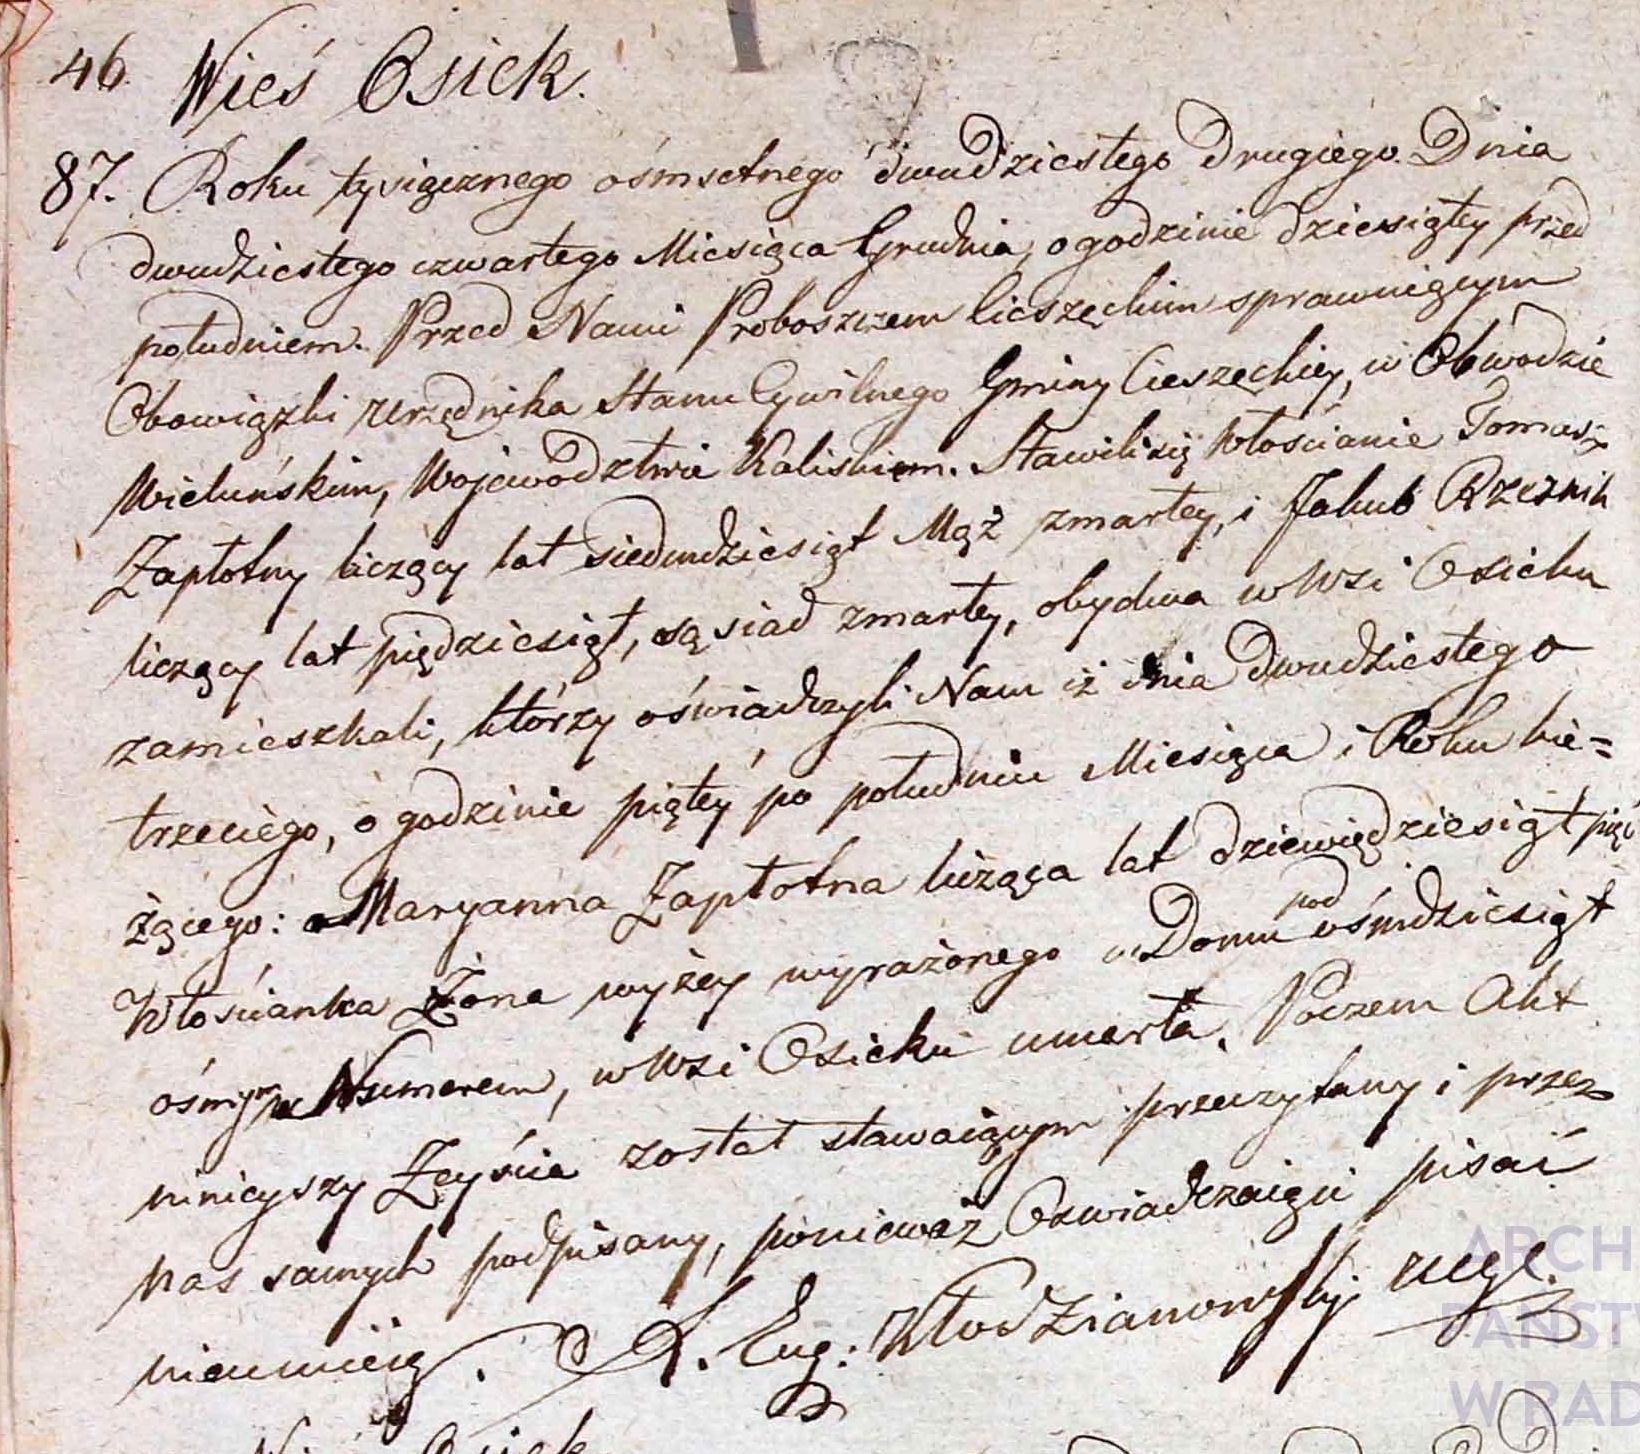 46. Wieś Osiek.
87. Roku tysiącznego ośmsetnego dwudziestego Drugiego Dnia
dwudziestego czwartego Miesiąca Grudnia, o godzinie dziesiątey przed
południem. Przed Nami Proboszczem Cieszęckim sprawuiącym
Obowiązki urzędnika Stanu Cywilnego Gminy Cieszęckiey, w Obwodzie
Wieluńskim, Wojewodztwie Kaliskiem. Stawili się Włościanie Tomasz
Zapłotny liczący lat siedmdziesiąt Mąż zmarłey, i Jakub Rzeznik
liczący lat piędziesiąt, sąsiad zmarłey, obydwa w Wsi Osieku
zamieszkali, którzy oświadczyli Nam iż dnia Dwudziestego
trzeciego, o godzinie piątey po południu Miesiąca i Roku bie=
żącego: Maryanna Zapłotna licząca lat dziewiędziesiąt pięć
Włościanka Żona wyżey wyrażonego w Domu pod ośmdziesiąt
ośmym Numerem, w Wsi Osieku umarła. Poczem Akt
ninieyszy Zeyścia został stawaiącym przeczytany i przez
nas samych podpisany, ponieważ Oswiadczaiący pisać
nieumieią. X. Eug: Włodzianowski
Wieś Osiek.
ARCH
PAŃSTW
W RAD